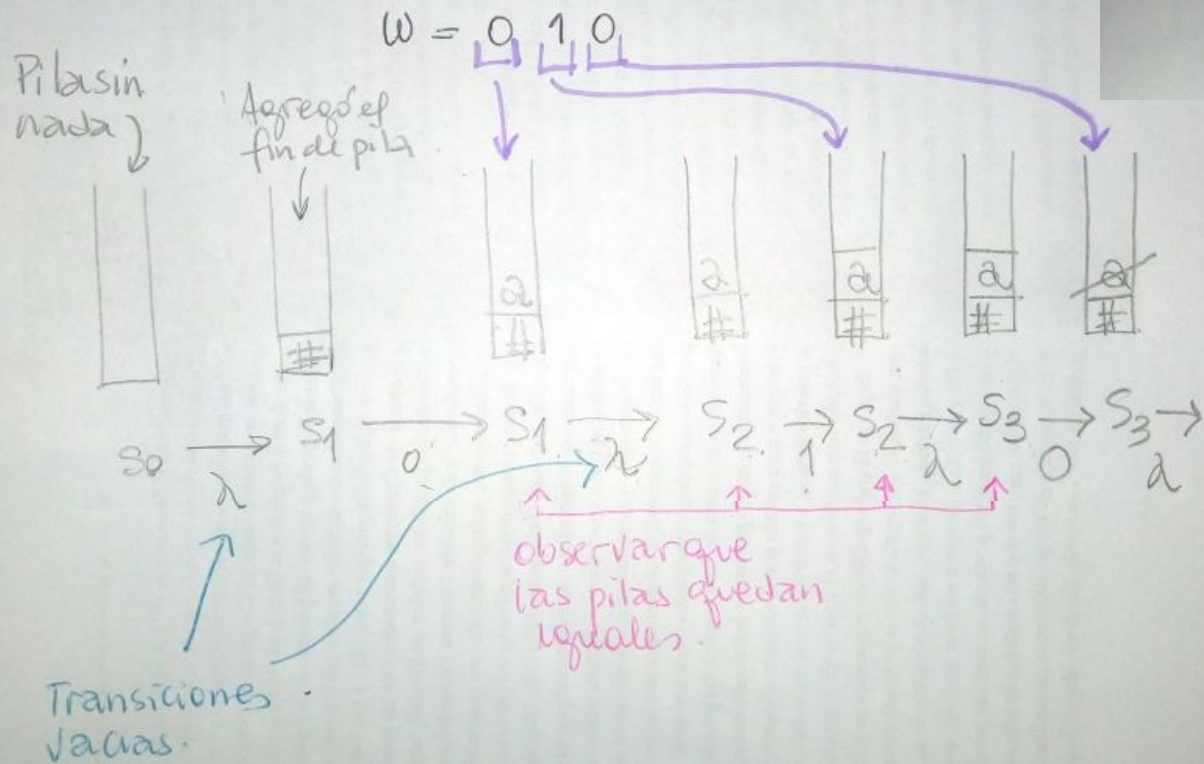 W = 0 1 0
Pila sin
nada
Agregó el
fin de pila
#
a
#
a
#
a
#
a
#
a
#
S0 → S1 → S1 → S2 → S2 → S3 → S3 →
λ 0 λ 1 λ 0 λ
observar que
las pilas quedan
iguales.
Transiciones
vacias.